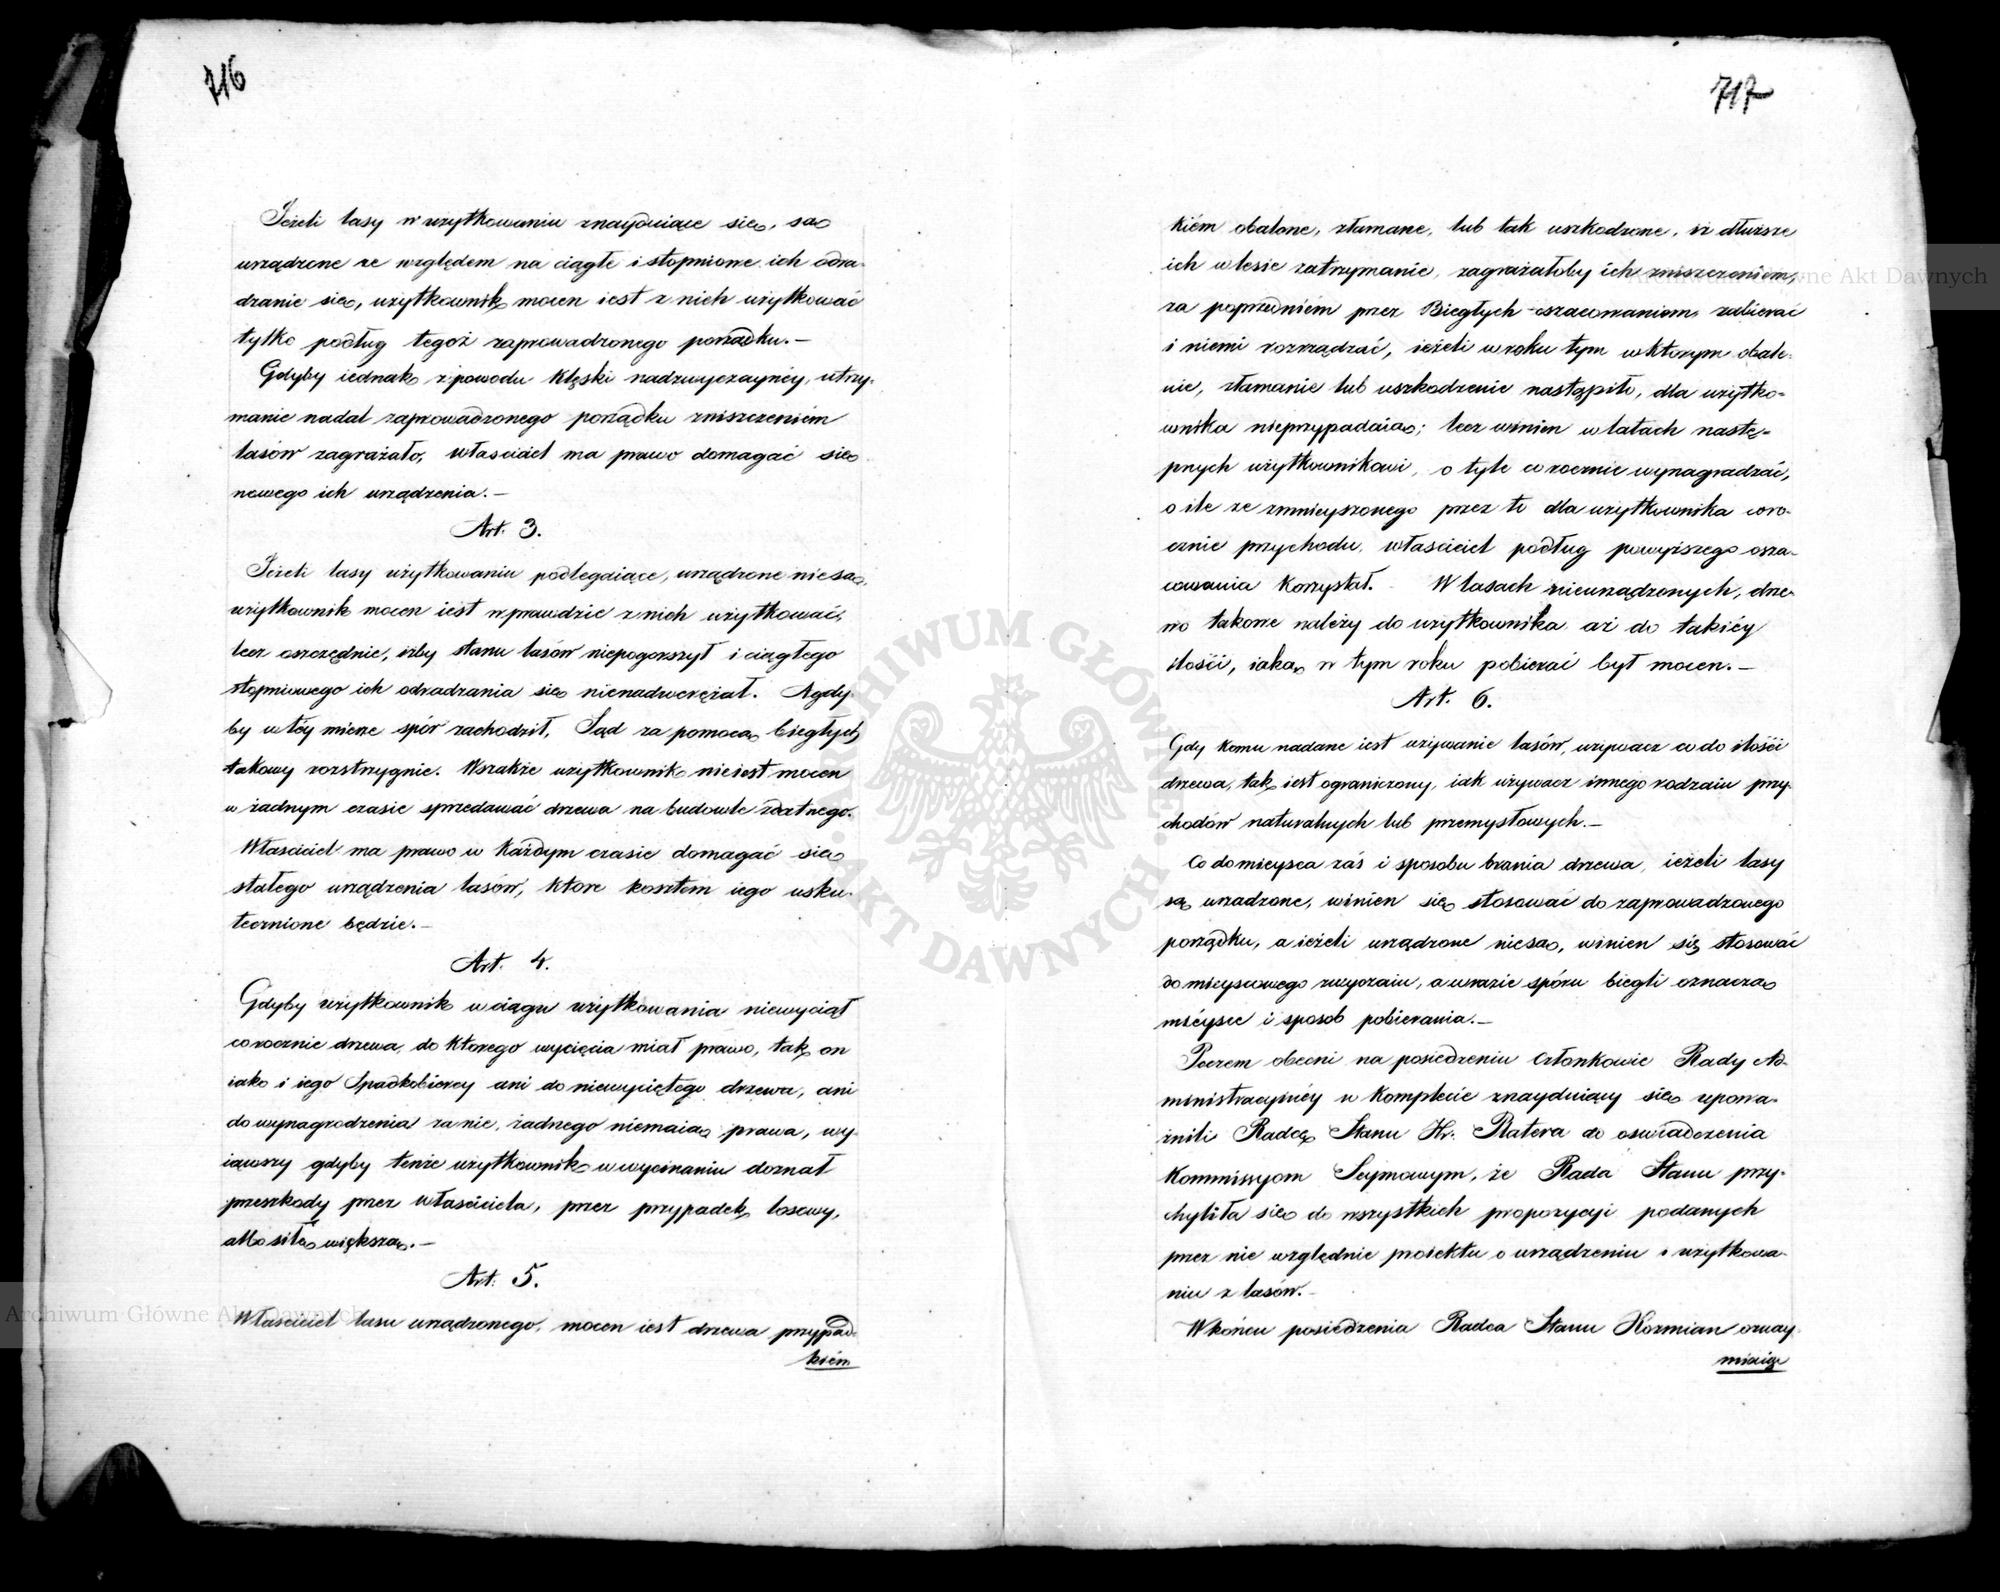 716
Jeżeli lasy w użytkowaniu znayduiące się, są
urządzone ze względem na ciągłe i stopniowe ich odra-
dzanie się, użytkownik mocen iest z nich użytkować
tylko podług tegoż zaprowadzonego porządku. —
Gdyby iednak z powodu klęski nadzwyczaynéy, utrzy-
manie nadal zaprowadzonego porządku zniszczeniém
lasów zagrażało, właściciel ma prawo domagać się
nowego ich urządzenia. —
Art. 3.
Jeżeli lasy użytkowaniu podlegaiące, urządzone nie są,
użytkownik mocen iest wprawdzie z nich użytkować,
lecz oszczędnie, iżby stanu lasów niepogorszył i ciągłego
stopniowego ich odradzania się nienadwerężał. A gdy-
by w téy mierze spór zachodził, Sąd za pomocą biegłych
takowy rozstrzygnie. Wszakże użytkownik nie iest mocen
w żadnym czasie sprzedawać drzewa na budowle zdatnego.
Właściciel ma prawo w każdym czasie domagać się
stałego urządzenia lasów, które kosztem iego usku-
tecznione będzie. —
Art. 4.
Gdyby użytkownik w ciągu użytkowania niewyciął
corocznie drzewa, do którego wycięcia miał prawo, tak on
iako i iego Spadkobiercy ani do niewyciętego drzewa, ani
do wynagrodzenia za nie, żadnego niemaią prawa, wy-
iąwszy gdyby tenże użytkownik w wycinaniu doznał
przeszkody przez właściciela, przez przypadek losowy,
albo siłą większą. —
Art. 5.
Właściciel lasu urządzonego, mocen iest drzewa przypad-
kiém
717
kiém obalone, złamane, lub tak uszkodzone, iż dłuższe
ich w lesie zatrzymanie, zagrażałoby ich zniszczeniem,
za poprzedniém przez Biegłych oszacowaniem, zabierać
i niemi rozrządzać, ieżeli w roku tym w którym obale-
nie, złamanie lub uszkodzenie nastąpiło, dla użytko-
wnika nieprzypadaią; lecz winien w latach nastę-
pnych użytkownikowi, o tyle corocznie wynagradzać,
o ile ze zmnieyszonego przez to dla użytkownika coro-
cznie przychodu, właściciel podług powyższego osza-
cowania korzystał. — W lasach nieurządzonych, drze-
wo takowe należy do użytkownika aż do takiéy
ilości, iaką w tym roku pobierać był mocen. —
Art. 6.
Gdy komu nadane iest używanie lasów, używacz co do ilości
drzewa, tak iest ograniczony, iak używacz innego rodzaiu przy-
chodów naturalnych lub przemysłowych. —
Co do mieysca zaś i sposobu brania drzewa, ieżeli lasy
są urządzone, winien się stosować do zaprowadzonego
porządku, a ieżeli urządzone nie są, winien się stosować
do mieyscowego zwyczaiu, a w razie spóru biegli oznaczą
mieysce i sposob pobierania. —
Poczem obecni na posiedzeniu Członkowie Rady Ad-
ministracyinéy w komplecie znayduiący się upowa-
żnili Radcę Stanu Hr. Platera do oswiadczenia
Kommissyom Seymowym, że Rada Stanu przy-
chyliła się do wszystkich propozycyi podanych
przez nie względnie proiektu o urządzeniu i użytkowa-
niu z lasów. —
W końcu posiedzenia Radca Stanu Kozmian oznay-
miaiąc
Archiwum Główne Akt Dawnych
ARCHIWUM GŁÓWNE AKT DAWNYCH
Archiwum Główne Akt Dawnych